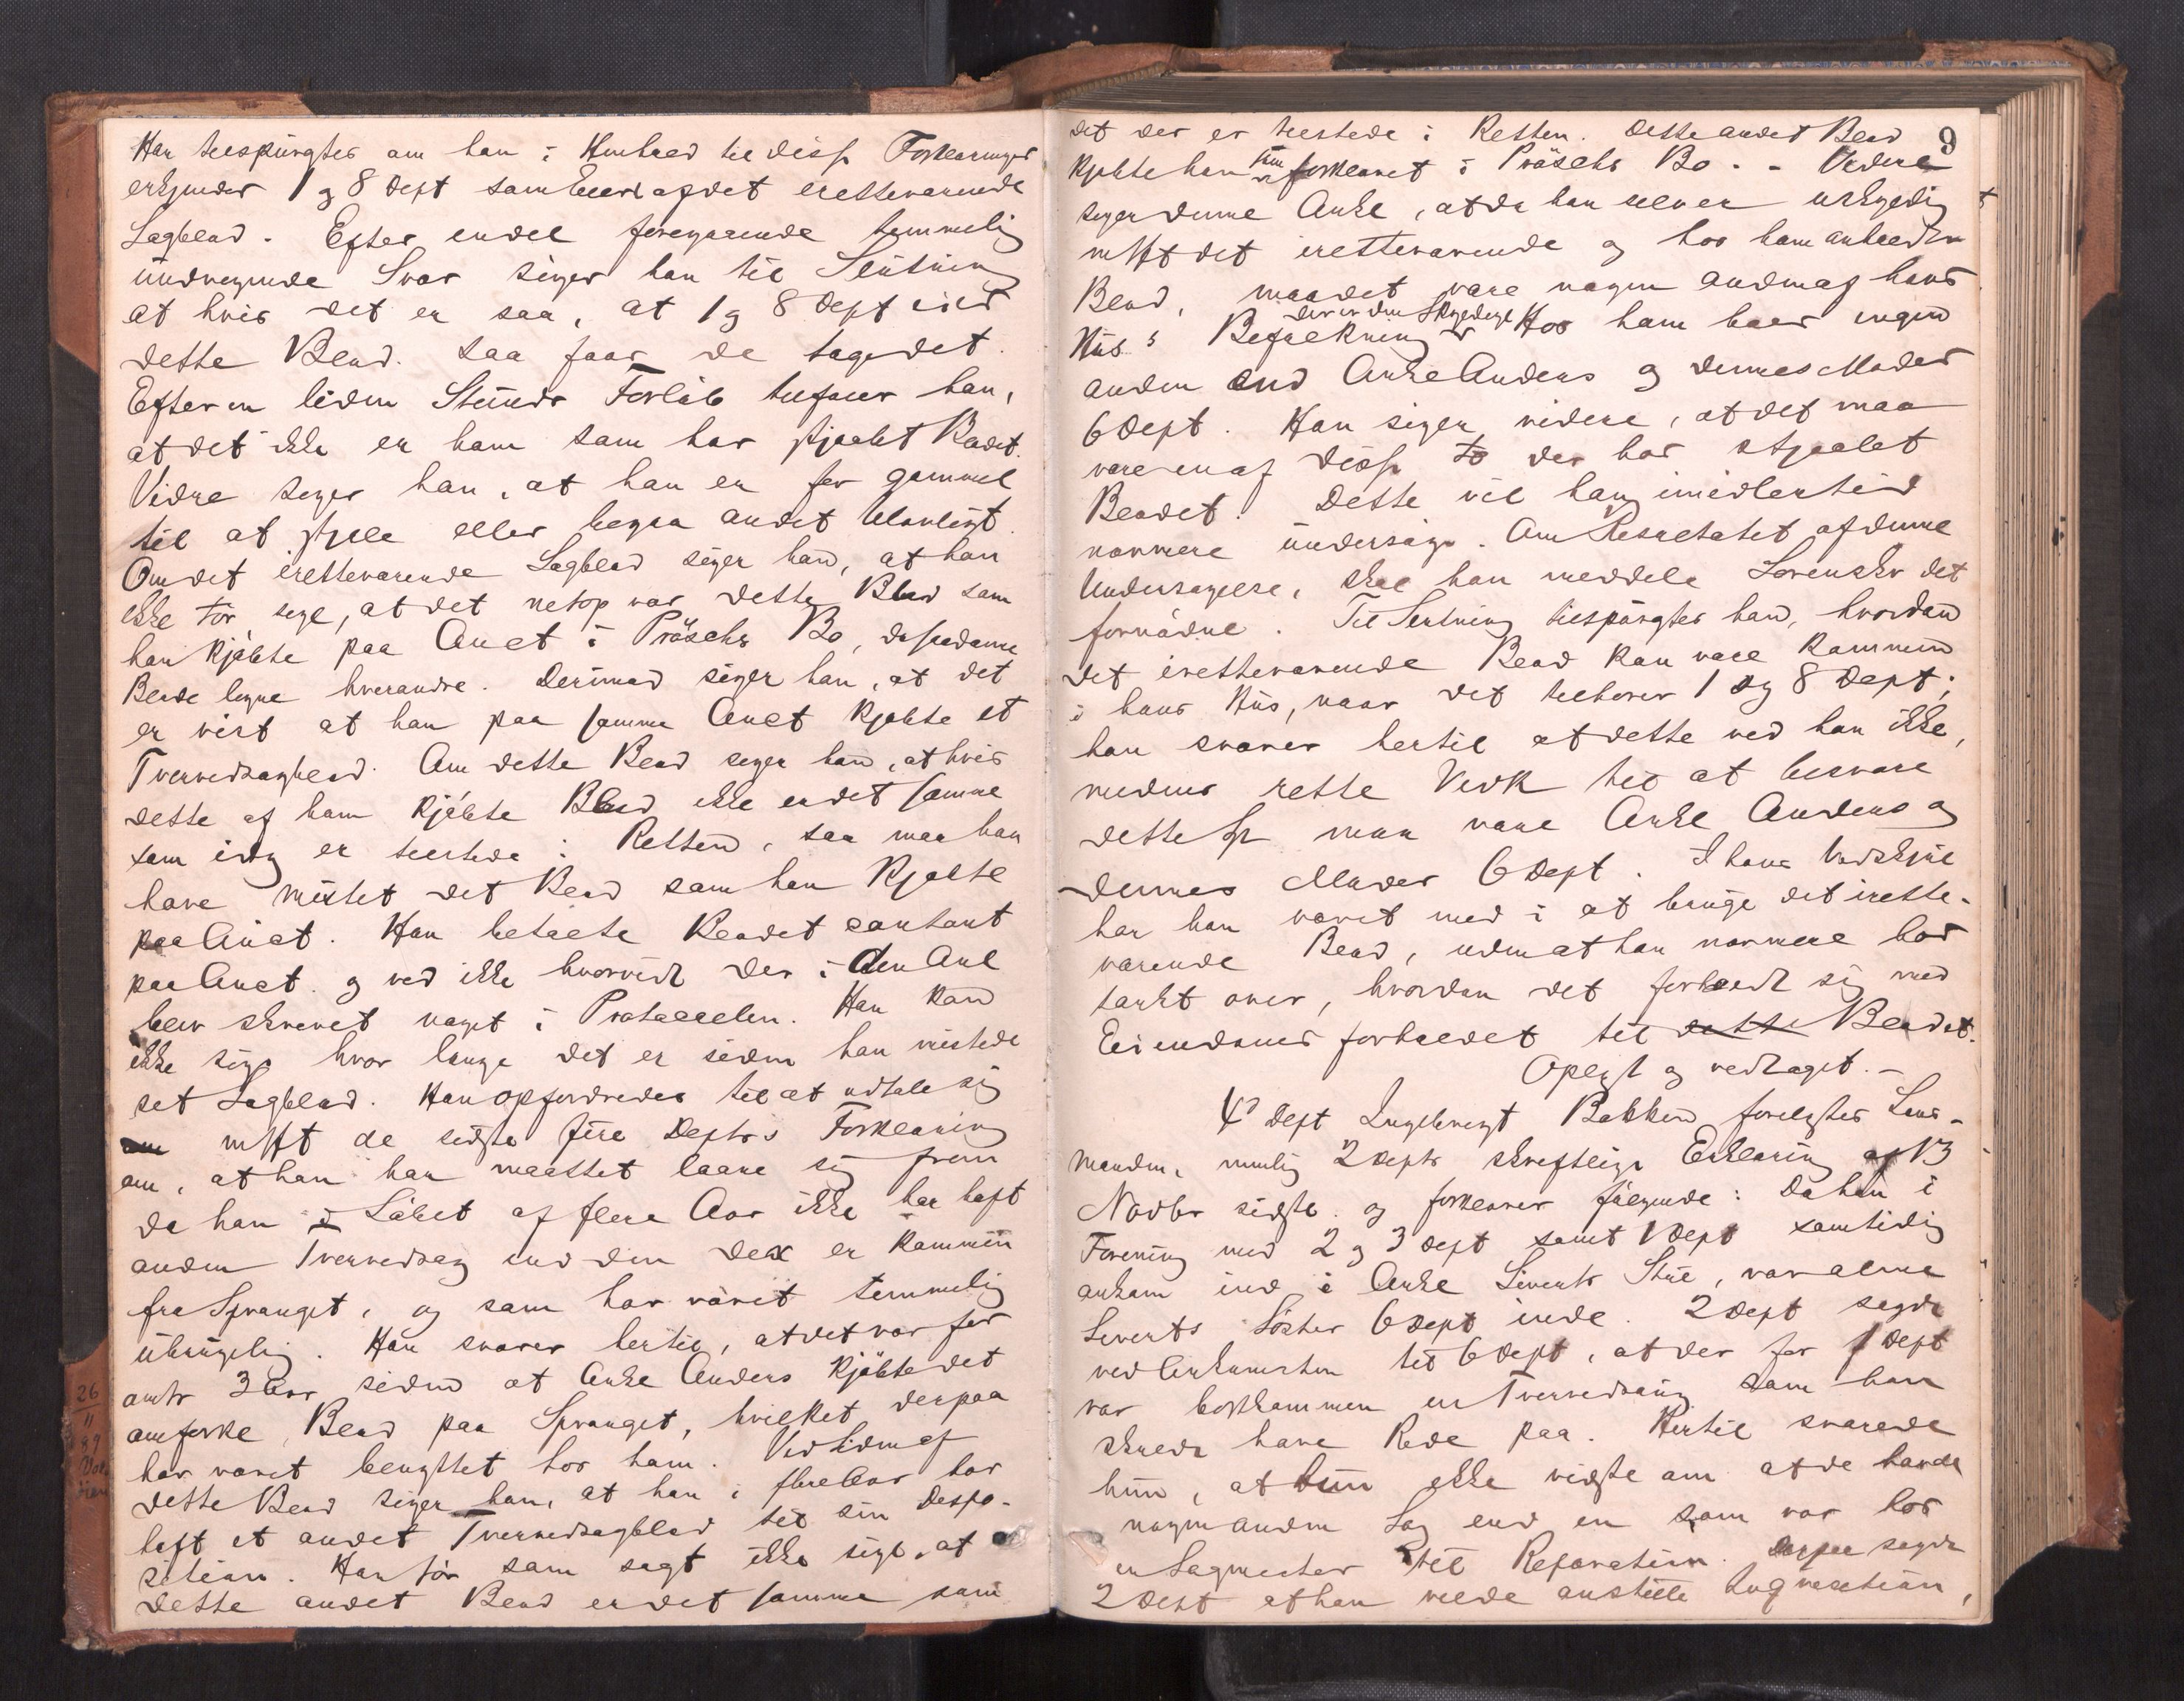 Han tilspurgtes om han i Henhold til disse Forklaringer
erkjender 1 og 8 Dept som Eier af det irettevarende
Sagblad. Efter endel foregaaende temmelig
undvegende Svar siger han til Slutning
at hvis det er saa, at 1 og 8 Dept eier
dette Blad. saa faar de tage det.
Efter en liden Stunds Forløb tilføier han,
at det ikke er ham som har stjaalet Bladet.
Vidre siger han, at han er for gammel
til at stjele eller begaa andet Ulovligt.
Om det irettevarende Sagblad siger han, at han
ikke tør sige, at det netop var dette Blad som
han kjøbte paa Auct i Präschs Bo, da saadanne
Blade ligne hverandre. Derimod siger han, at det
er vist at han paa samme Auct kjøbte et
Tvervedsagblad. Om dette Blad siger han, at hvis
dette af ham kjøbte Blad ikke er det samme
som idag er tilstede i Retten, saa maa han
have mistet det Blad som han kjøbte
paa Auct. Han betalte Bladet contant
paa Auct. og ved ikke hvorvidt der i den Anl
blev skrevet noget i Protocollen. Han kan
ikke sige hvor længe det er siden han mistede
set Sagblad. Han opfordredes til at udtale sig
msst de sidste fire Deptrs Forklaring
om, at han har maattet laane sig frem
da han i Løbet af flere Aar ikke har haft
anden Tvervedsag end den der er kommen
fra Spranget, og som har været temmelig
ubrugelig. Han svarer hertil, at det var for
omtr 3 Aar siden at Anke Anders kjøbte det
omforkl. Blad paa Spranget, hvilket derpaa
har været benyttet hos ham. Ved Siden af
dette Blad siger han, at han i flere Aar har
haft et andet Tvervedsagblad til sin Dispo-
sition. Han tør som sagt ikke sige, at
dette andet Blad er det samme som
9
det der er tilstede i Retten. Dette andet Blad
kjøbte han som forklaret i Präschs Bo. - Videre
siger denne Anke, at da han selv er uskyldig
msst det irettevarende og hos ham anholdte
Blad, maa det være nogen anden af hans
Hus's Befolkning der er den Skyldige. Hos ham boer ingen
anden end Anke Anders og dennes Moder
6 Dept. Han siger videre, at det maa
være en af disse to der har stjaalet
Bladet. Dette vil han imidlertid
nærmere undersøge. Om Resultatet af denne
Undersøgelse, skal han meddele Lensm det
fornødne. Til Slutning tilspurgtes han, hvordan
det irettevarende Blad kan være kommen
i hans Hus, naar det tilhører 1 og 8 Dept;
han svarer hertil at dette ved han ikke,
medens rette Vedk til at besvare
dette Sp maa være Anke Anders og
dennes Moder 6 Dept. I hans Vedskjul
har han været med i at bruge det irette-
værende Blad, uden at han nærmere har
tænkt over, hvordan det forholdt sig med
Eiendomsforholdet til dette Bladet.
Oplæst og vedtaget. -
4de Dept Ingebregt Bakken forelagtes Lens-
manden, nemlig 2 Depts skriftlige Erklæring af 13
Novbr sidste. og forklarer følgende: Da han i
Forening med 2 og 3 Dept samt 1 Dept samtidig
ankom ind i Anke Siverts Stue, var alene
Siverts Søster 6 Dept inde. 2 Dept sagde
ved Ankomsten til 6 Dept, at der for 1 Dept
var bortkommen en Tvervedsaug som han
skulde have Rede paa. Hertil svarede
hun, at hun ikke vidste om at de havde
nogen anden Sag end en som var hos
en Sagmester til Reparation. Derpaa sagde
2 Dept at han vilde anstille Inqvisition,
26
11
89